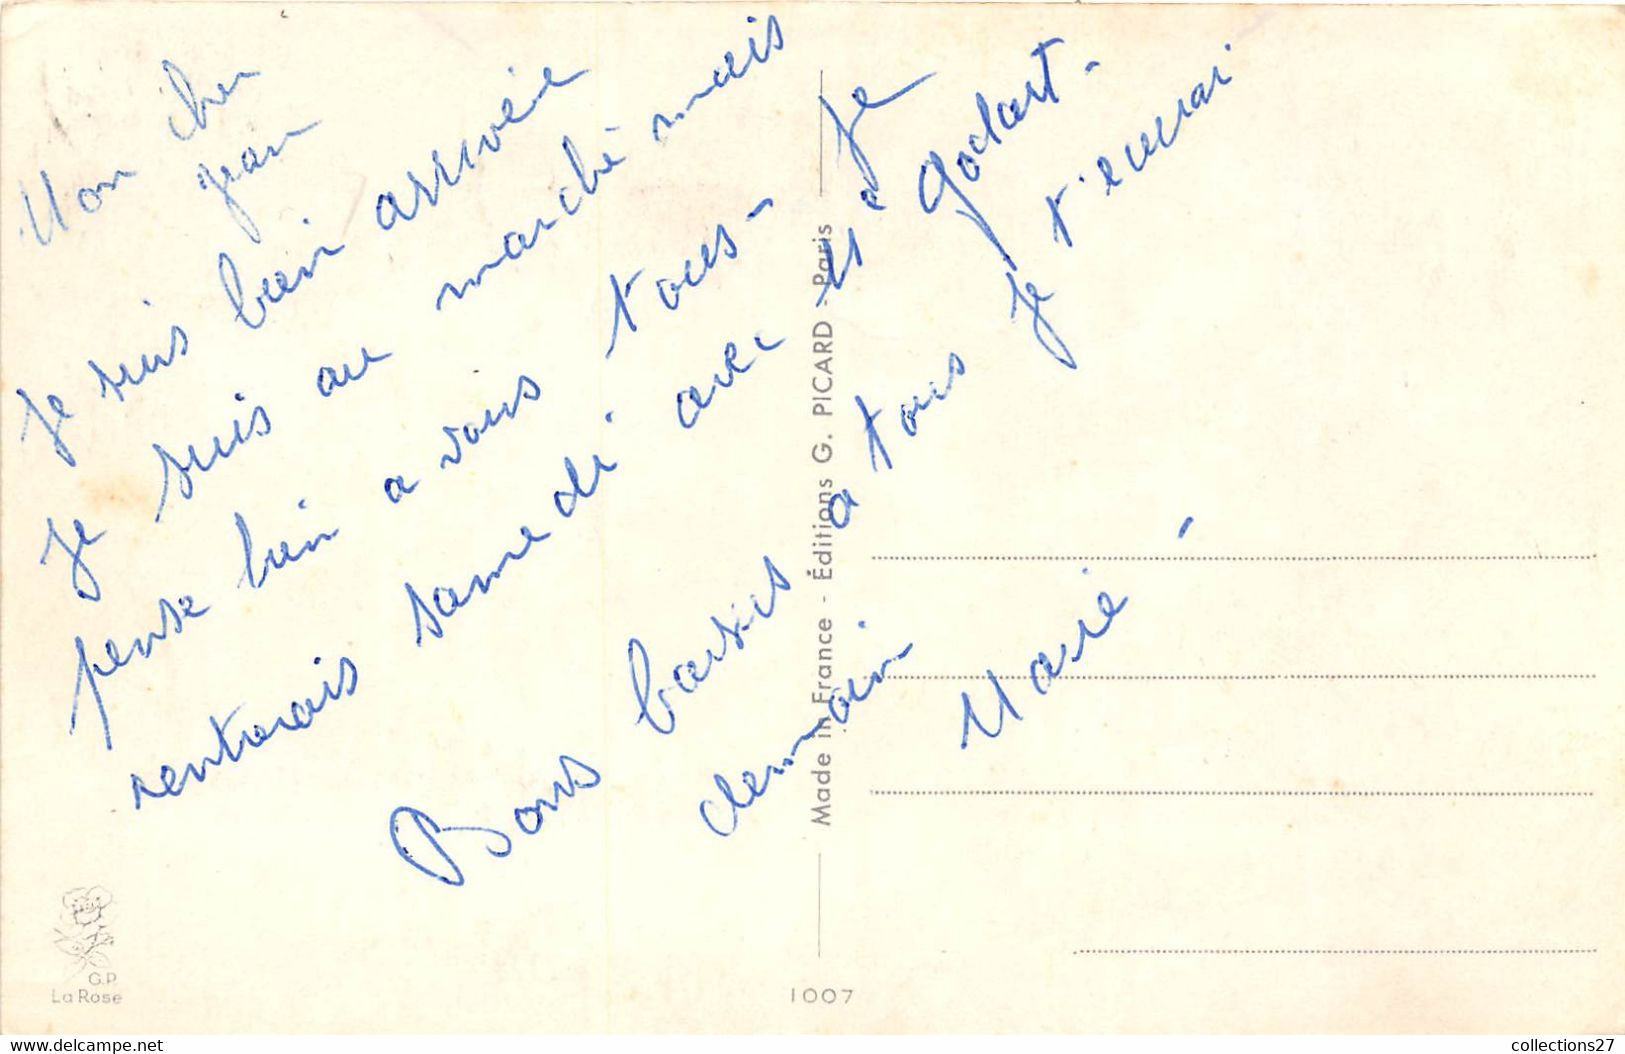 Mon cher
Jean
Je suis bien arrivée
Je suis au marché mais
pense bien a vous tous - Je
rentrerais samedi avec Me Godart -
Bons baisers a tous Je t'ecrirai
demain
Marie -
Made in France - Éditions G. PICARD - Paris
G.P.
La Rose
1007
www.delcampe.net
collections27